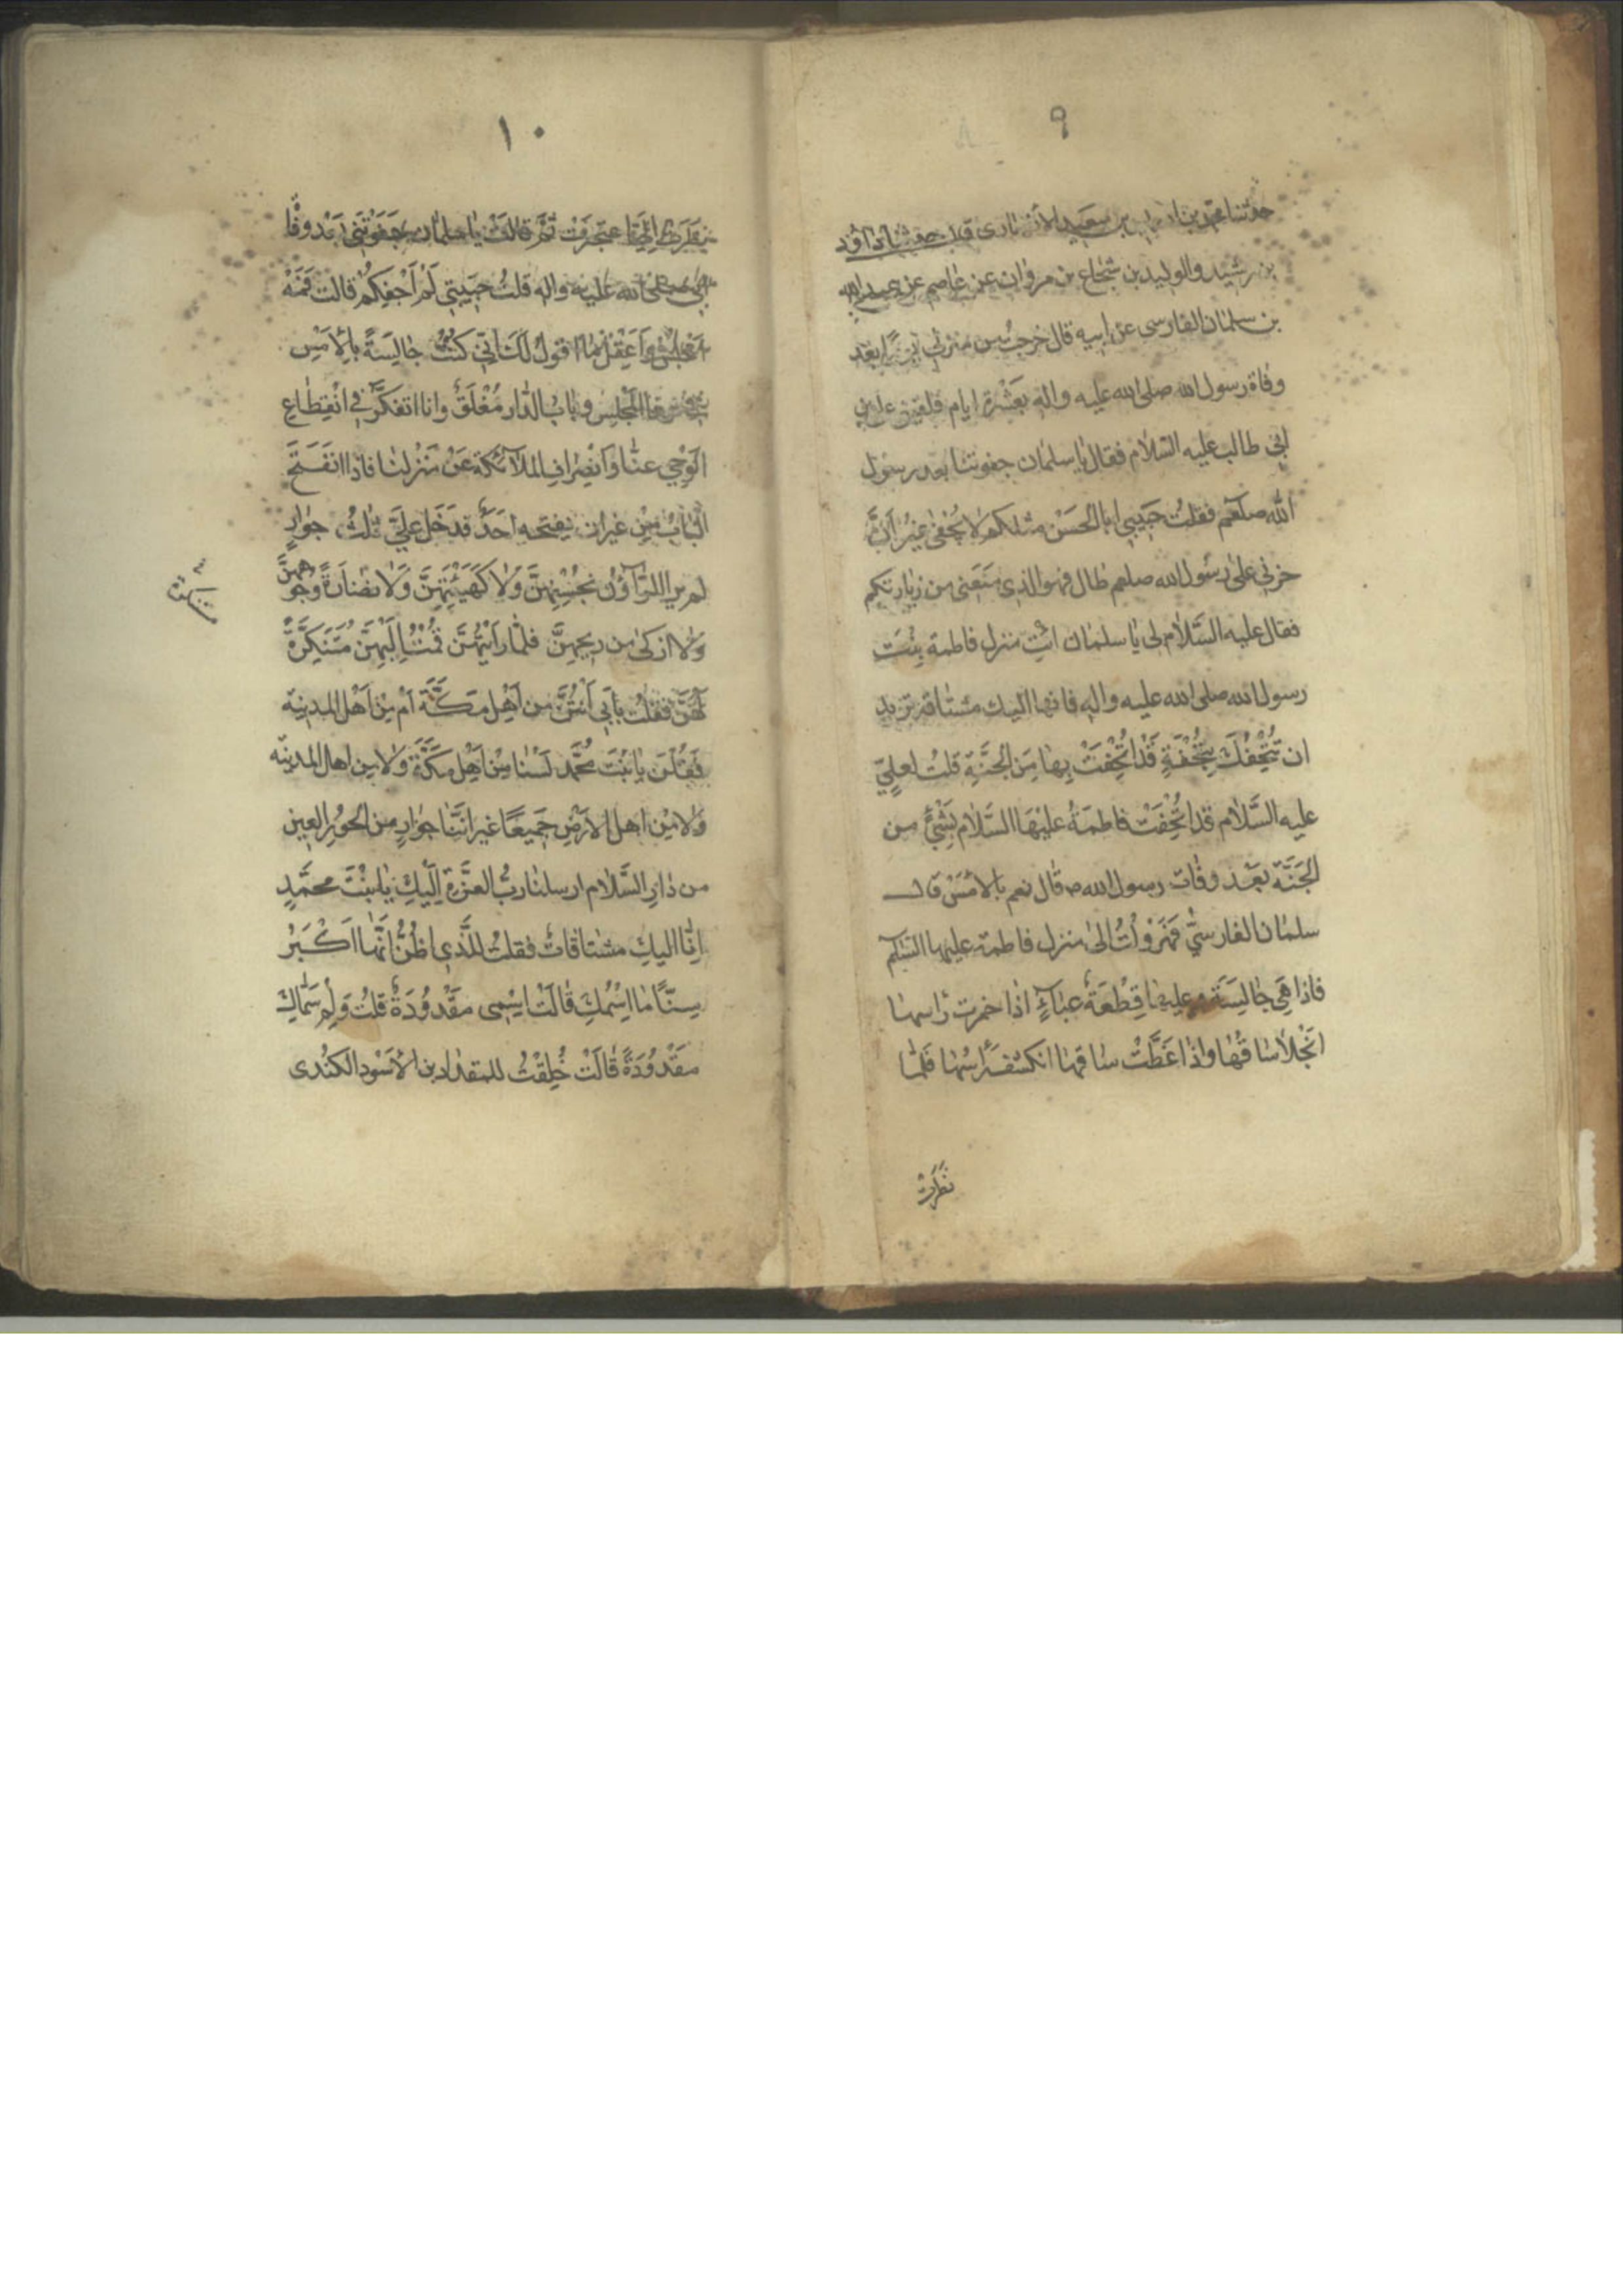 ٩
حدثنا محمد بن ادريس بن سعيد الانصارى قال حدثنا داود
بن رشيد والوليد بن شجاع بن مروان عن عاصم عن عبد الله
بن سلمان الفارسى عن ابيه قال خرجت من منزلى يوما بعد
وفاة رسول الله صلى الله عليه واله بعشرة ايام فلقينى على بن
ابى طالب عليه السلام فقال يا سلمان جفوتنا بعد رسول
الله صلعم فقلت حبيبى ابا الحسن مثلكم لا يُجْفىٰ غيرَ اَنَّ
حزنى على رسول الله صلعم طال فهو الذى مَنَعَنى من زيارتكم
فقال عليه السَّلام لى يا سلمان ائتِ منزل فاطمة بِنْتَ
رسول الله صلى الله عليه واله فانها اليك مشتاقة تريد
ان تُتْحِفُكَ بِتُحْفَةٍ قَدْ اُتْحِفَتْ بِها مِنَ الجَنَّةِ قلتُ لعلىٍّ
عليه السَّلام قد اُتْحِفَتْ فاطمَةُ عليْهَا السَّلام بِشَيْءٍ من
الجَنَّة بَعْد وفات رسول الله ص قال نعم بالامْسَ قال
سلمان الفارسىّ فَهَرْولْتُ الىٰ منزل فاطمة عليها السلم
فاذا هِىَ جالِسَة وعليها قِطْعَةُ عباءٍ اذا خمرت رأسها
انْجَلا ساقُها واذا غَطَّتْ ساقها انكشف رَأسُها فَلمّا
نظرت
١٠
نَظَرَتْ اِلَىَّ اعتَجَرَتْ ثمَّ قالَتْ يا سلمان جَفَوْتَنى بَعْد وفاة
ابى صلى الله عليه واله قلتُ حَبيبَتى لَمْ اَجْفِكُمْ قالت فَمَهْ
اجْلِسْ وَاعْقِلْ ما اقولُ لَكَ اِنّى كُنْتُ جالِسَةً بالاَمْسِ
فى هذا المَجْلِسِ وبابُ الدّار مُغْلَقٌ وانا اتفكَّر فى انْقِطاعِ
الوَحْىِ عنّا وَانْصِرافِ الملآئكة عَنْ مَنْزِلنا فاذا انفَتَحَ
البابُ مِنْ غير ان يفتحه احَدٌ فدَخَل علىَّ ثلثُ جوارٍ
لم ير الرّآؤن بحُسْنِهِنَّ وَلا كَهَيْئَتِهِنَّ وَلا نضٰارَةَ وُجوههنَّ
وَلا ازكىٰ من ريحِهِنَّ فلمّا رَاَيْتُهُنَّ قُمْتُ اِلَيْهِنَّ مُتَنَكِّرَةً
لَهُنَّ فقلت باَبى اَنْتُنَّ من اَهْلِ مَكَّةَ اَمْ مِن اَهْل المدينة
فَقُلْنَ يا بِنْتَ مُحَمَّد لَسْنا مِنْ اَهْلِ مكَّةَ وَلا من اهل المدينة
وَلا مِنْ اهل الاَرَضِ جَميعًا غير انَّنا جوارٍ من الحُورِ العين
من دٰارِ السَّلام ارسلنا ربُّ العزَّة اِلَيْكِ يا بنْتَ محمَّدٍ
اِنّا اليكِ مشتاقات فقلتُ للَّذى اظُنُّ انَّها اكْبَرُ
سِنّاً ما اسْمُكِ قالَتْ اسْمى مقْدُودَةُ قلتُ وَلِمَ سُمِّيتِ
مَقْدُودَةً قالَتْ خُلِقْتُ للمقداد بن الاَسْود الكنْدى